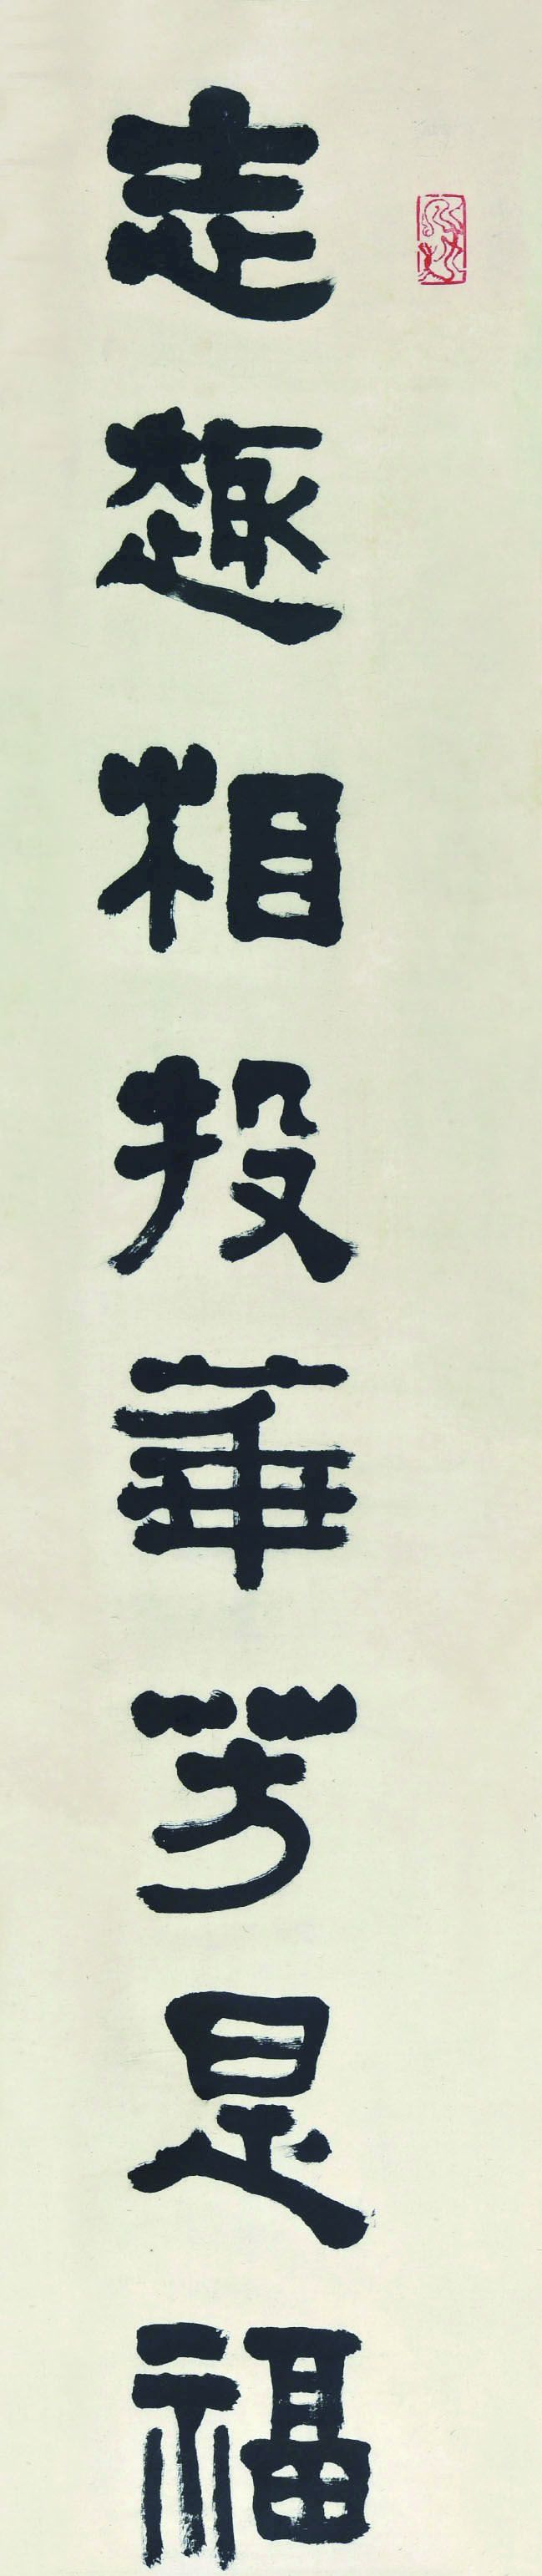 志趣相投華芳是福